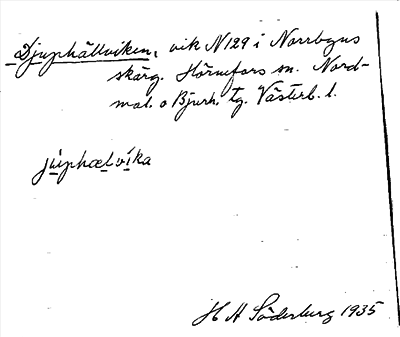 Djuphällviken, vik N129 i Norrbyns
skärg. Hörnefors sn. Nord-
mal. o Bjurh. tg. Västerb. l.
juphælvika
H A Söderburg 1935